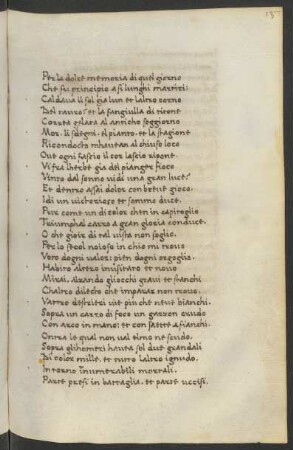 157
Per la dolce memoria di quel giorno
Che fu principio a si lunghi martiri
Caldaua il sol gia lun et laltro corno
Del tauro: et la fanciulla di titone
Correa gelata al anticho soggiorno
Amor. li sdegni. el pianto. et la stagione
Ricondocto mhauean al chiuso loco
Oue ogni fascio il cor lasso ripone.
Vi fra lherbe gia del pianger fioco
Vinto dal sonno uidi una gran luce:
Et dentro assai dolor con breue gioco.
Vidi un uictorioso et sommo duce.
Pur come un di color chen in capitoglio
Triumphal carro a gran gloria conduce.
O che gioir di tal uista non soglio.
Per lo secol noioso in chio mi trouo
Voto dogni ualor: pien dogni orgoglio.
Habito altero inusitato et nouo
Mirai. alzando gliocchi graui et stanchi
Chaltro dilecto che imparar non prouo.
Quattro destrieri uie piu che neue bianchi.
Sopra un carro di foco un garzon crudo
Con arco in mano: et con saette a fianchi.
Contra lo qual non ual elmo ne scudo.
Sopra glihomeri hauea sol due grandali
Di color mille. et tutto laltro ignudo.
Intorno innumerabili mortali.
Parte presi in battaglia. et parte uccisi.